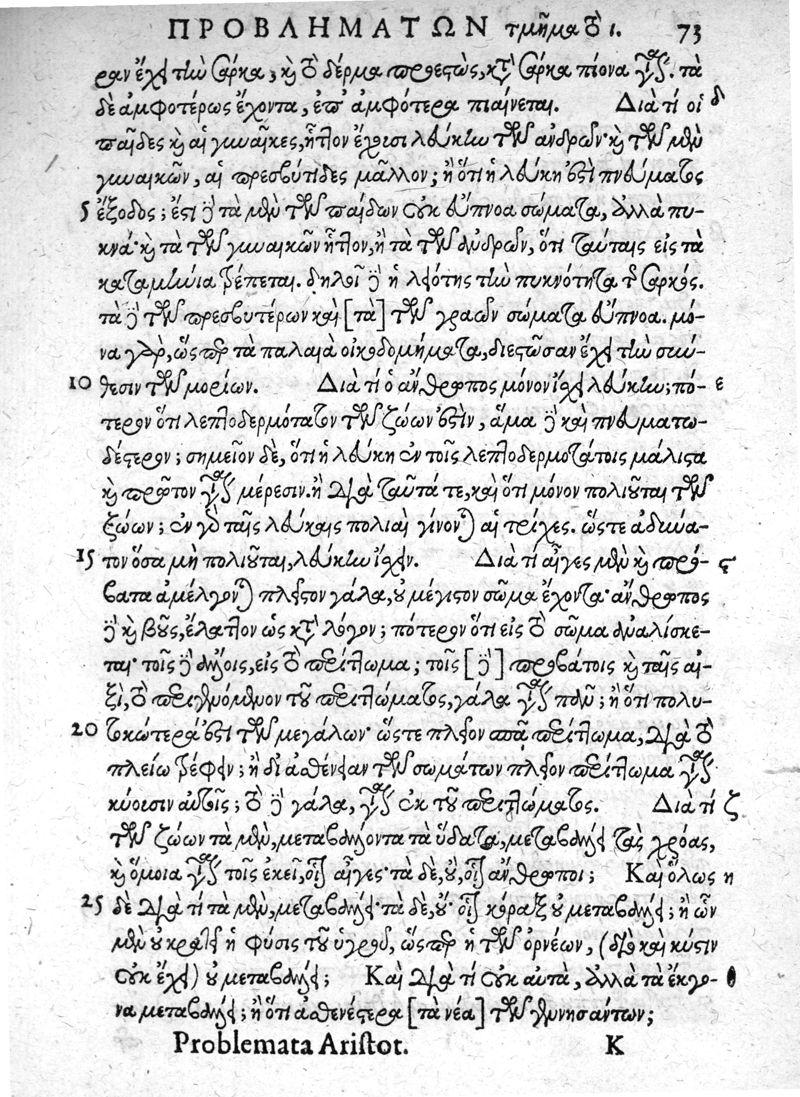 ΠΡΟΒΛΗΜΑΤΩΝ τμῆμα τὸ ι. 73
ραν ἔχει τὴν σάρκα, καὶ τὸ δέρμα προεστὼς, κατὰ σάρκα πίονα γίνεται. τὰ
δὲ ἀμφοτέρως ἔχοντα, ἐπ' ἀμφότερα πιαίνεται. Διὰ τί οἱ δ
παῖδες καὶ αἱ γυναῖκες, ἧττον ἔχουσι λεύκην τῶν ἀνδρῶν· καὶ τῶν μὲν
γυναικῶν, αἱ πρεσβύτιδες μᾶλλον; ἢ ὅτι ἡ λεύκη ἐστὶ πνεύματος
5 ἔξοδος; ἔστι δὲ τὰ μὲν τῶν παίδων οὐκ εὔπνοα σώματα, ἀλλὰ πυ-
κνά· καὶ τὰ τῶν γυναικῶν ἧττον, ἢ τὰ τῶν ἀνδρῶν, ὅτι ταύταις εἰς τὰ
καταμήνια τρέπεται. δηλοῖ δὲ ἡ λειότης τὴν πυκνότητα τῆς σαρκός.
τὰ δὲ τῶν πρεσβυτέρων καὶ [τὰ] τῶν γραῶν σώματα εὔπνοα. μό-
να γὰρ, ὥσπερ τὰ παλαιὰ οἰκοδομήματα, διεστῶσαν ἔχει τὴν σύν-
10 θεσιν τῶν μορίων. Διὰ τί ὁ ἄνθρωπος μόνον ἴσχει λεύκην; πό- ε
τερον ὅτι λεπτοδερμότατον τῶν ζώων ἐστὶν, ἅμα δὲ καὶ πνευματω-
δέστερον; σημεῖον δὲ, ὅτι ἡ λεύκη ἐν τοῖς λεπτοδερμοτάτοις μάλιστα
καὶ πρῶτον γίνεται μέρεσιν. ἢ διὰ ταῦτά τε, καὶ ὅτι μόνον πολιοῦται τῶν
ζώων; ἐν γὰρ ταῖς λεύκαις πολιαὶ γίνονται αἱ τρίχες. ὥστε ἀδύνα-
15 τον ὅσα μὴ πολιοῦται, λεύκην ἴσχειν. Διὰ τί αἶγες μὲν καὶ πρό- ϛ
βατα ἀμέλγονται πλεῖστον γάλα, οὐ μέγιστον σῶμα ἔχοντα· ἄνθρωπος
δὲ καὶ βοῦς, ἔλαττον ὡς κατὰ λόγον; πότερον ὅτι εἰς τὸ σῶμα ἀναλίσκε-
ται· τοῖς δὲ ἄλλοις, εἰς τὸ περίττωμα; τοῖς [δὲ] προβάτοις καὶ ταῖς αἰ-
ξὶ, τὸ περιγενόμενον τοῦ περιττώματος, γάλα γίνεται πολύ; ἢ ὅτι πολυ-
20 τοκώτερά ἐστι τῶν μεγάλων· ὥστε πλεῖον σπᾷ περίττωμα, διὰ τὸ
πλείω τρέφειν; ἢ δι' ἀσθένειαν τῶν σωμάτων πλεῖον περίττωμα γίνεται
κύουσιν αὐτοῖς; τὸ δὲ γάλα, γίνεται ἐκ τοῦ περιττώματος. Διὰ τί ζ
τῶν ζώων τὰ μὲν, μεταβάλλοντα τὰ ὕδατα, μεταβάλλει τὰς χρόας,
καὶ ὅμοια γίνεται τοῖς ἐκεῖ, οἷον αἶγες· τὰ δὲ, οὔ, οἷον ἄνθρωποι; Καὶ ὅλως η
25 δὲ διὰ τί τὰ μὲν, μεταβάλλει· τὰ δὲ, οὔ· οἷον κόραξ οὐ μεταβάλλει; ἢ ὧν
μὲν οὐ κρατεῖ ἡ φύσις τοῦ ὑγροῦ, ὥσπερ ἡ τῶν ὀρνέων, (διὸ καὶ κύστιν
οὐκ ἔχει) οὐ μεταβάλλει; Καὶ διὰ τί οὐκ αὐτὰ, ἀλλὰ τὰ ἔκγο-
να μεταβάλλει; ἢ ὅτι ἀσθενέστερα [τὰ νέα] τῶν γεννησάντων;
Problemata Aristot. K